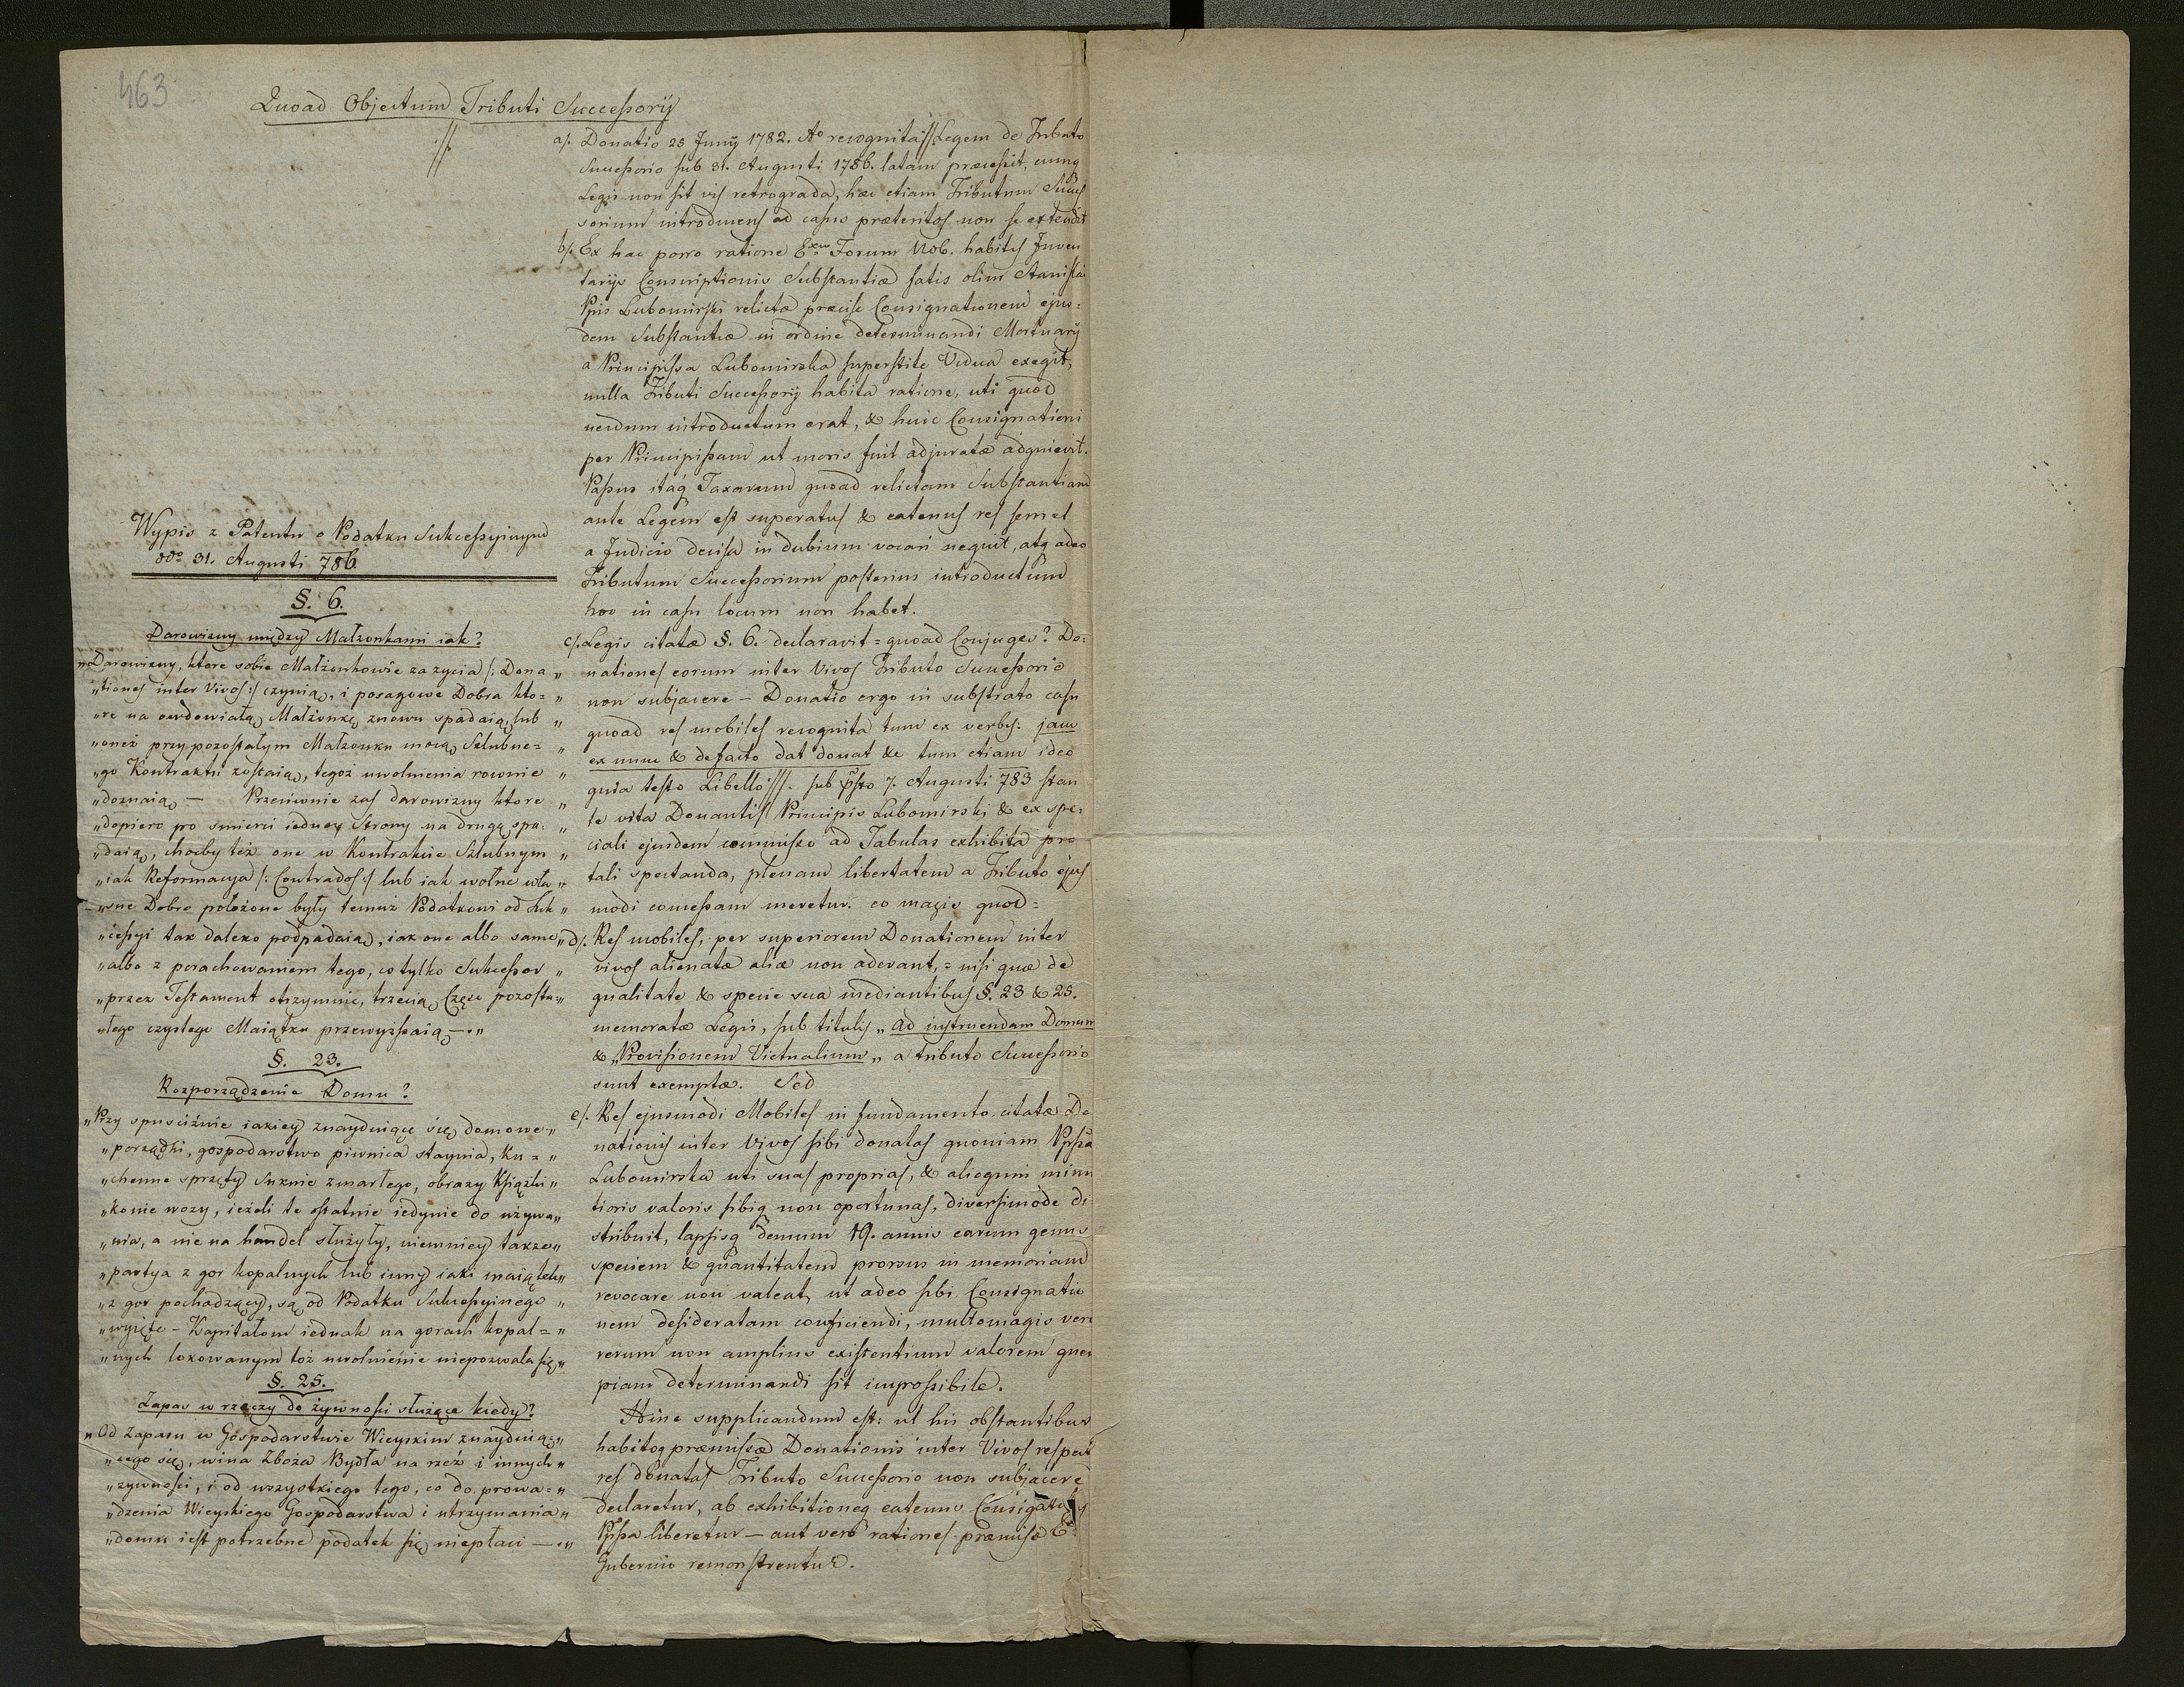 463
Quoad Objectum Tributi Successorii
a/. Donatio 25 Junii 1782. Ao recognita // Legem de Tributo
Successorio sub 31. Augusti 1786. latam præcessit, cumq
Legis non sit vis retrograda, hæc etiam Tributum Succes
sorium introducens ad casus præteritos non se extendit
b/. Ex hac porro ratione Forum Nob. habitis Inven
tariis Conscriptionis Substantiæ fatis olim Stanislai
Ppis Lubomirski relictæ præcise Consignationem ejus=
dem Substantiæ in ordine determinandi Mortuarii
a Principissa Lubomirska superstite Vidua exegit,
nulla Tributi Successorii habita ratione, uti quod
necdum introductum erat, & huic Consignationi
per Principissam ut moris fuit adjuratæ adquievit.
Passus itaq Taxarum quoad relictam Substantiam
ante Legem est superatus & eatenus res semel
a Judicio decisa in dubium vocari nequit, atq adeo
Tributum Successorium posterius introductum
hoc in casu locum non habet.
c/. Legis citatæ §. 6. declaravit = quoad Conjuges? Do=
nationes eorum inter Vivos Tributo Successorio
non subjacere – Donatio ergo in substrato casu
quoad res mobiles recognita tum ex verbis: jam
ex nunc & defacto dat donat &c tum etiam ideo
quia teste Libello ///. sub psto 7. Augusti 783 stan
te vita Donantis Principis Lubomirski & ex spe=
ciali ejusdem commisso ad Tabulas exhibita pro
tali spectanda, plenam libertatem a Tributo ejus
modi concessam meretur. eo magis quod =
d/. Res mobiles, per superiorem Donationem inter
vivos alienatæ aliæ non aderant, = nisi quæ de
qualitate & specie sua mediantibus §. 23 & 25.
memoratæ Legis, sub titulis „ad instruendam Domum
& „Provisionem Victualium„ a tributo Successorio
sunt exemptæ. Sed
e/. Res ejusmodi Mobiles in fundamento citatæ Do
nationis inter Vivos sibi donatas quoniam Ppssa
Lubomirska uti suas proprias, & aliequin minu
tioris valoris sibiq non oportunas, diversimode di
stribuit, lapsisq demum 19. annis earum genus
speciem & quantitatem prorsus in memoriam
revocare non valeat, ut adeo sibi Consignatio
nem desideratam conficiendi, multomagis vero
rerum non amplius existentium valorem quem
piam determinandi sit impossibile.
Hinc supplicandum est: ut his obstantibus
habitoq præmissæ Donationis inter Vivos respectu
res donatas Tributo Successorio non subjacere
declaretur, ab exhibitioneq eatenus
Ppssa liberetur – aut vero rationes præmissæ
Gubernio remonstrentur.
Wypis z Patentu o Podatku Sukcessyinym
ddo 31. Augusti 786
§. 6.
Darowizny między Małzonkami iak?
„Darowizny, ktore sobie Małżonkowie za zycia /: Dona „
„tiones inter Vivos :/ czynią, i posagowe Dobra kto= „
„re na owdowiałą Małżonkę znowu spadaią, lub „
„oneż przy pozostałym Małzonku mocą Szlubne= „
„go Kontraktu zostaią, tegoż uwolnienia rownie „
„doznaią – Przeciwnie zas darowizny ktore „
„dopiero po smierci iedney Strony na drugą spa= „
„daią, choćby też one w Kontrakcie Szlubnym „
„iak Reformacya /: Contrados :/ lub iak wolne wła „
„sne Dobro położone były temuż Podatkowi od Suk „
„cessyi tak daleko podpadaią, iak one albo same „
„albo z porachowaniem tego, co tylko Sukcessor „
„przez Testament otrzymuie, trzecią Częsc pozosta= „
„łego czystego Maiątku przewyższaią – . „
§. 23.
Rozporządzenie Domu?
„Przy spusciźnie iakiey znayduiące się domowe „
„porządki, gospodarstwo piwnica staynia, ku = „
„chenne sprzęty Suknie zmarłego, obrazy Książki „
„konie wozy, ieżeli te ostatnie iedynie do używa „
„nia, a nie na handel służyły, niemniey takze „
„partya z gor kopalnych lub inny iaki maiątek „
„z gor pochodzący, są od Podatku Sukcessyinego „
„wyięte – Kapitałom iednak na gorach kopal = „
„nych lokowanym toż uwolnienie niepozwala się „
§. 25.
Zapas w rzeczy do żywnosci służące kiedy?
„Od Zapasu w Gospodarstwie Wieyskim znayduią= „
„cego się, wina Zboża Bydła na rzeź i innych „
„zywnosci, i od wszystkiego tego, co do prowa= „
„dzenia Wieyskiego Gospodarstwa i utrzymania „
„domu iest potrzebne podatek się niepłaci – . „